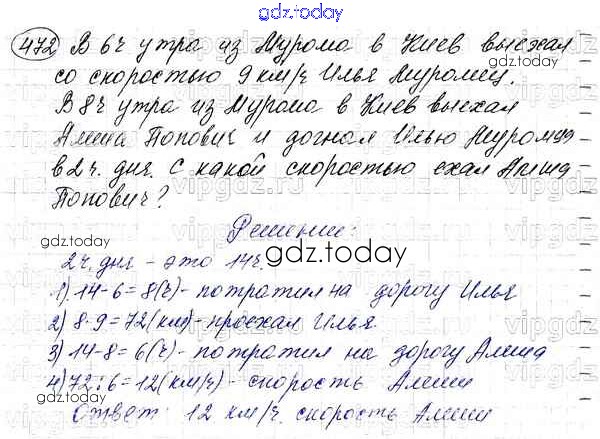 gdz.today
472 В 6ч утра из Мурома в Киев выехал
со скоростью 9 км/ч Илья Муромец.
В 8ч утра из Мурома в Киев выехал
Алеша Попович и догнал Илью Муромца
в 2 ч. дня. С какой скоростью ехал Алеша
Попович?
Решение:
gdz.today
2ч. дня - это 14ч.
1) 14-6=8(ч)- потратил на дорогу Илья
2) 8·9=72(км)- проехал Илья.
3) 14-8=6(ч)- потратил на дорогу Алеша
4) 72:6=12(км/ч)- скорость Алеши
Ответ: 12 км/ч. скорость Алеши
gdz.today